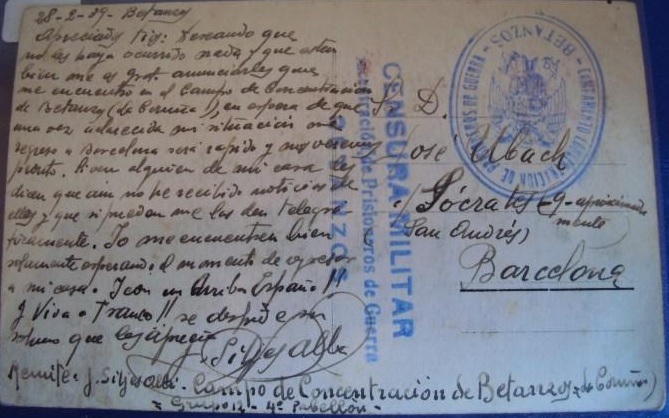 28-2-39- Betanzos
Apreciados tios: Deseando que
no les haya ocurrido nada y que esten
bien me es grato anunciarles que
me encuentro en el Campo de Concentracion
de Betanzos (de Coruña), en espera de que
una vez aclarecida mi situacion mi
regreso a Barcelona será rapido y nos veremos
pronto. Si ven alguien de mi casa les
dicen que aun no he recibido noticias de
ellos y que si pueden me las den telegra-
ficamente. Yo me encuentro bien
solamente esperando el momento de regresar
a mi casa. Y con un Arriba España!!
y Viva Franco!! se despide su
sobrino que les aprecia
J. Sitjes
Remite: J. Sitjes - Campo de Concentración de Betanzos (de Coruña)
Grupo 12 - 4º Pabellon -
S. D.
José Ubach
c/ Sócrates, 9 - aproximada
mente
(San Andrés)
Barcelona
CENSURA MILITAR
de Prisioneros de Guerra
BETANZOS
CAMPAMENTO CONCENTRACION DE PRISIONEROS DE GUERRA - BETANZOS -